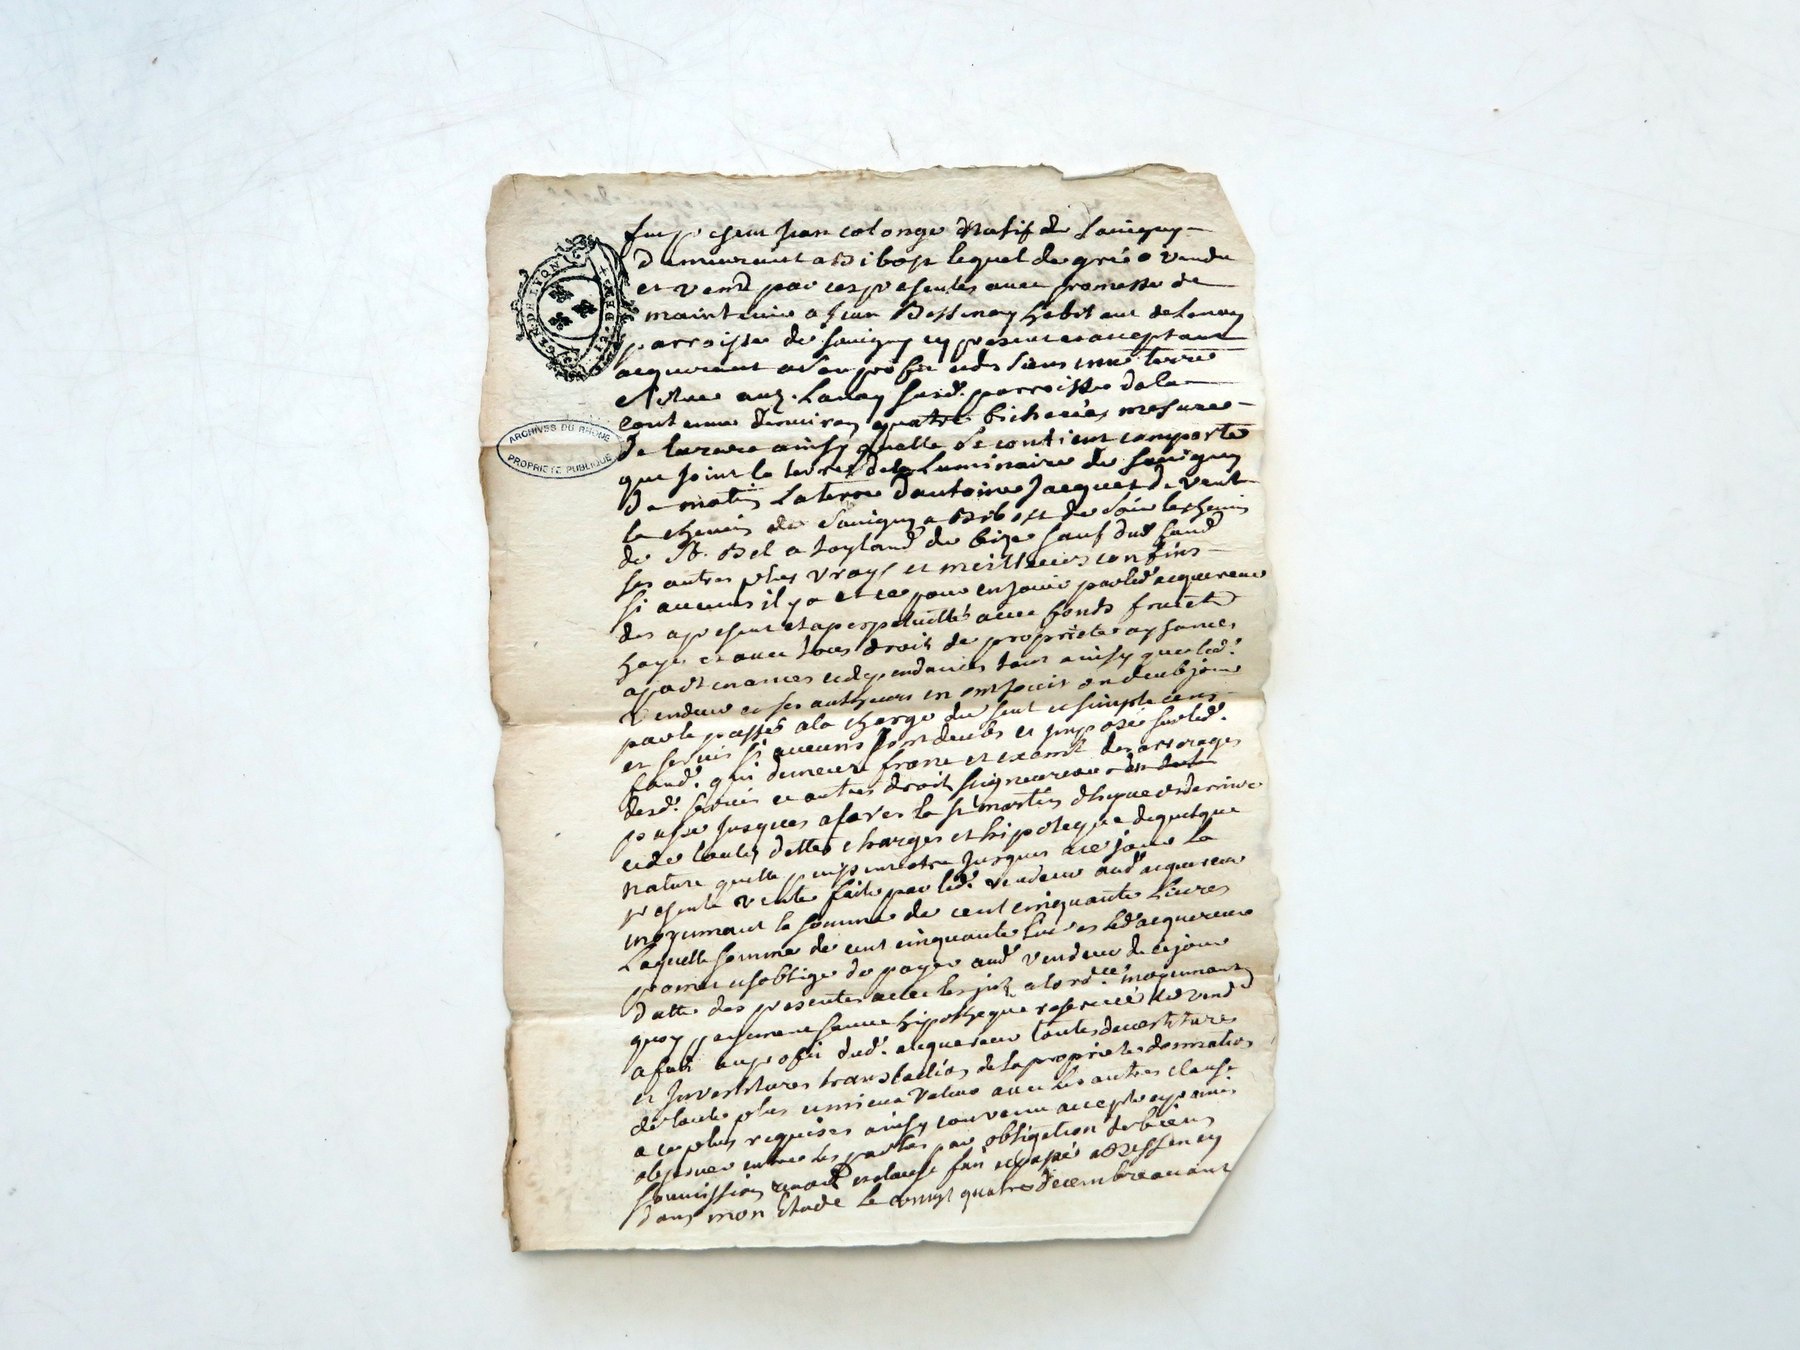 GEN. DE LYON
DEUX
ARCHIVES DU RHONE
PROPRIETE PUBLIQUE
fut p'' sieur Jean colonge natif de Savigny
demeurant a Bibost lequel de gré a vendu
et vend par ces presentes avec promesse de
maintenir a Jean Bessenay habitant de Lanay
parroisse de Savigny cy present et acceptant
acquerant a son profit et des siens une terre
située au Lanay susd. parroisse de la
contenue d'environ quatre bicherées mesure
de larare ainsy qu'elle se contient comporte
que joint la terre de la Luminaire de Savigny
de matin La terre d'antoine Jacquet de vent
le chemin de Savigny a Bibost de soir le chemin
de St. Bel a de bize sauf dud fond
ses autres plus vrays et meilleurs confins
si aucuns il y a et ce pour en jouir par led acquereur
des a present et a perpetuitté avec fonds fruict
hayes et avec tous droits de proprieté aysances
apartenances et dependances tout ainsy que led.
vendeur et ses autheurs en ont jouit ou deub jouir
par le passé a la charge du seul et simple cens
et servis si aucuns sont deubs et imposé sur led.
fond. qui demeure franc et exempt des arrerages
desd. servis et autres droits seigneuriaux
passé jusques a la St martin d'hyver derniere
et de toutes dettes charges et hipoteque de quelque
nature quelle puissent estre jusques a ce jour La
presente vente faite par led. vendeur aud acquereur
moyennant la somme de cent cinquante Livres
Laquelle somme de cent cinquante livres led acquereur
promet et s'oblige de payer aud vendeur de ce jour
datte des presentes avec les a lord.ce moyennant
quoy payement sauve hipotheque reservée led vend
a fait au profit dud. acquereur toutes devestitures
et Investitures translation de la proprieté donnation
de toute plus et mieux value avec les autres clauses
a ce plus requises ainsy convenu accepté et promis
observer entre les parties par obligation de biens
soumission renon et clause fait et passé a Bessenay
dans mon Etude le vingt quatre decembre avant